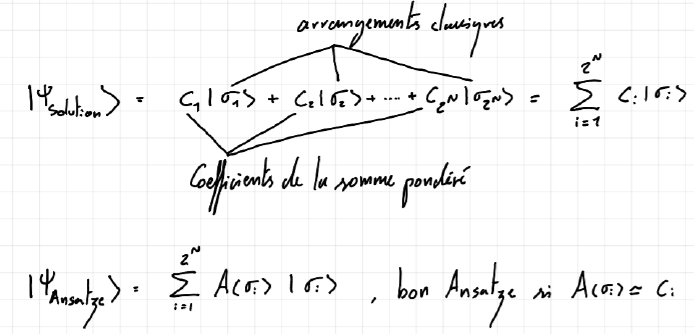 arrangements classiques
|Ψ_Solution⟩ = C_1|σ_1⟩ + C_2|σ_2⟩ + ... + C_2^N|σ_2^N⟩ = ∑_{i=1}^{2^N} C_i|σ_i⟩
Coefficients de la somme pondéré
|Ψ_Ansatze⟩ = ∑_{i=1}^{2^N} A(σ_i) |σ_i⟩ , bon Ansatze si A(σ_i) ≃ C_i